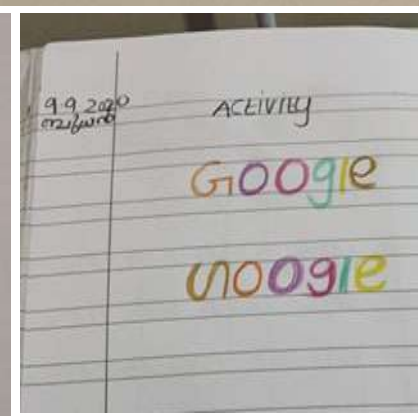 9.9.2020
ACtivity
Google
ഗoogle